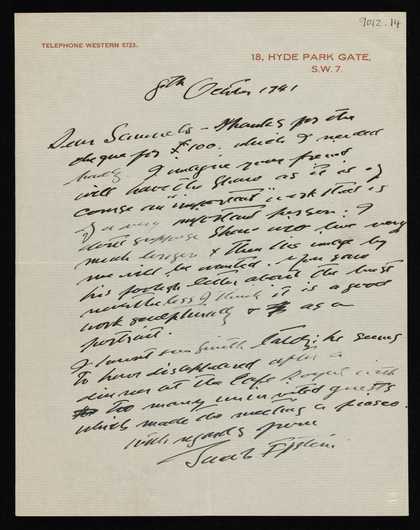 9012.14
TELEPHONE WESTERN 5723.
18, HYDE PARK GATE,
S.W. 7.
8th October 1941
Dear Samuels – Thanks for the
cheque for £100. which I needed
badly. I imagine your friend
will have the Shaw as it is of
course an "important" work that is
of a very important person: I
don't suppose Shaw will live very
much longer & then his image by
me will be wanted. You saw
his foolish letter about the bust
nevertheless I think it is a good
work sculpturally & as a
portrait.
I Smith lately; he seems
to have disappeared after a
dinner at the Cafe Royal with
too many uninvited guests
which made the meeting a fiasco.
with regards from
Jacob Epstein